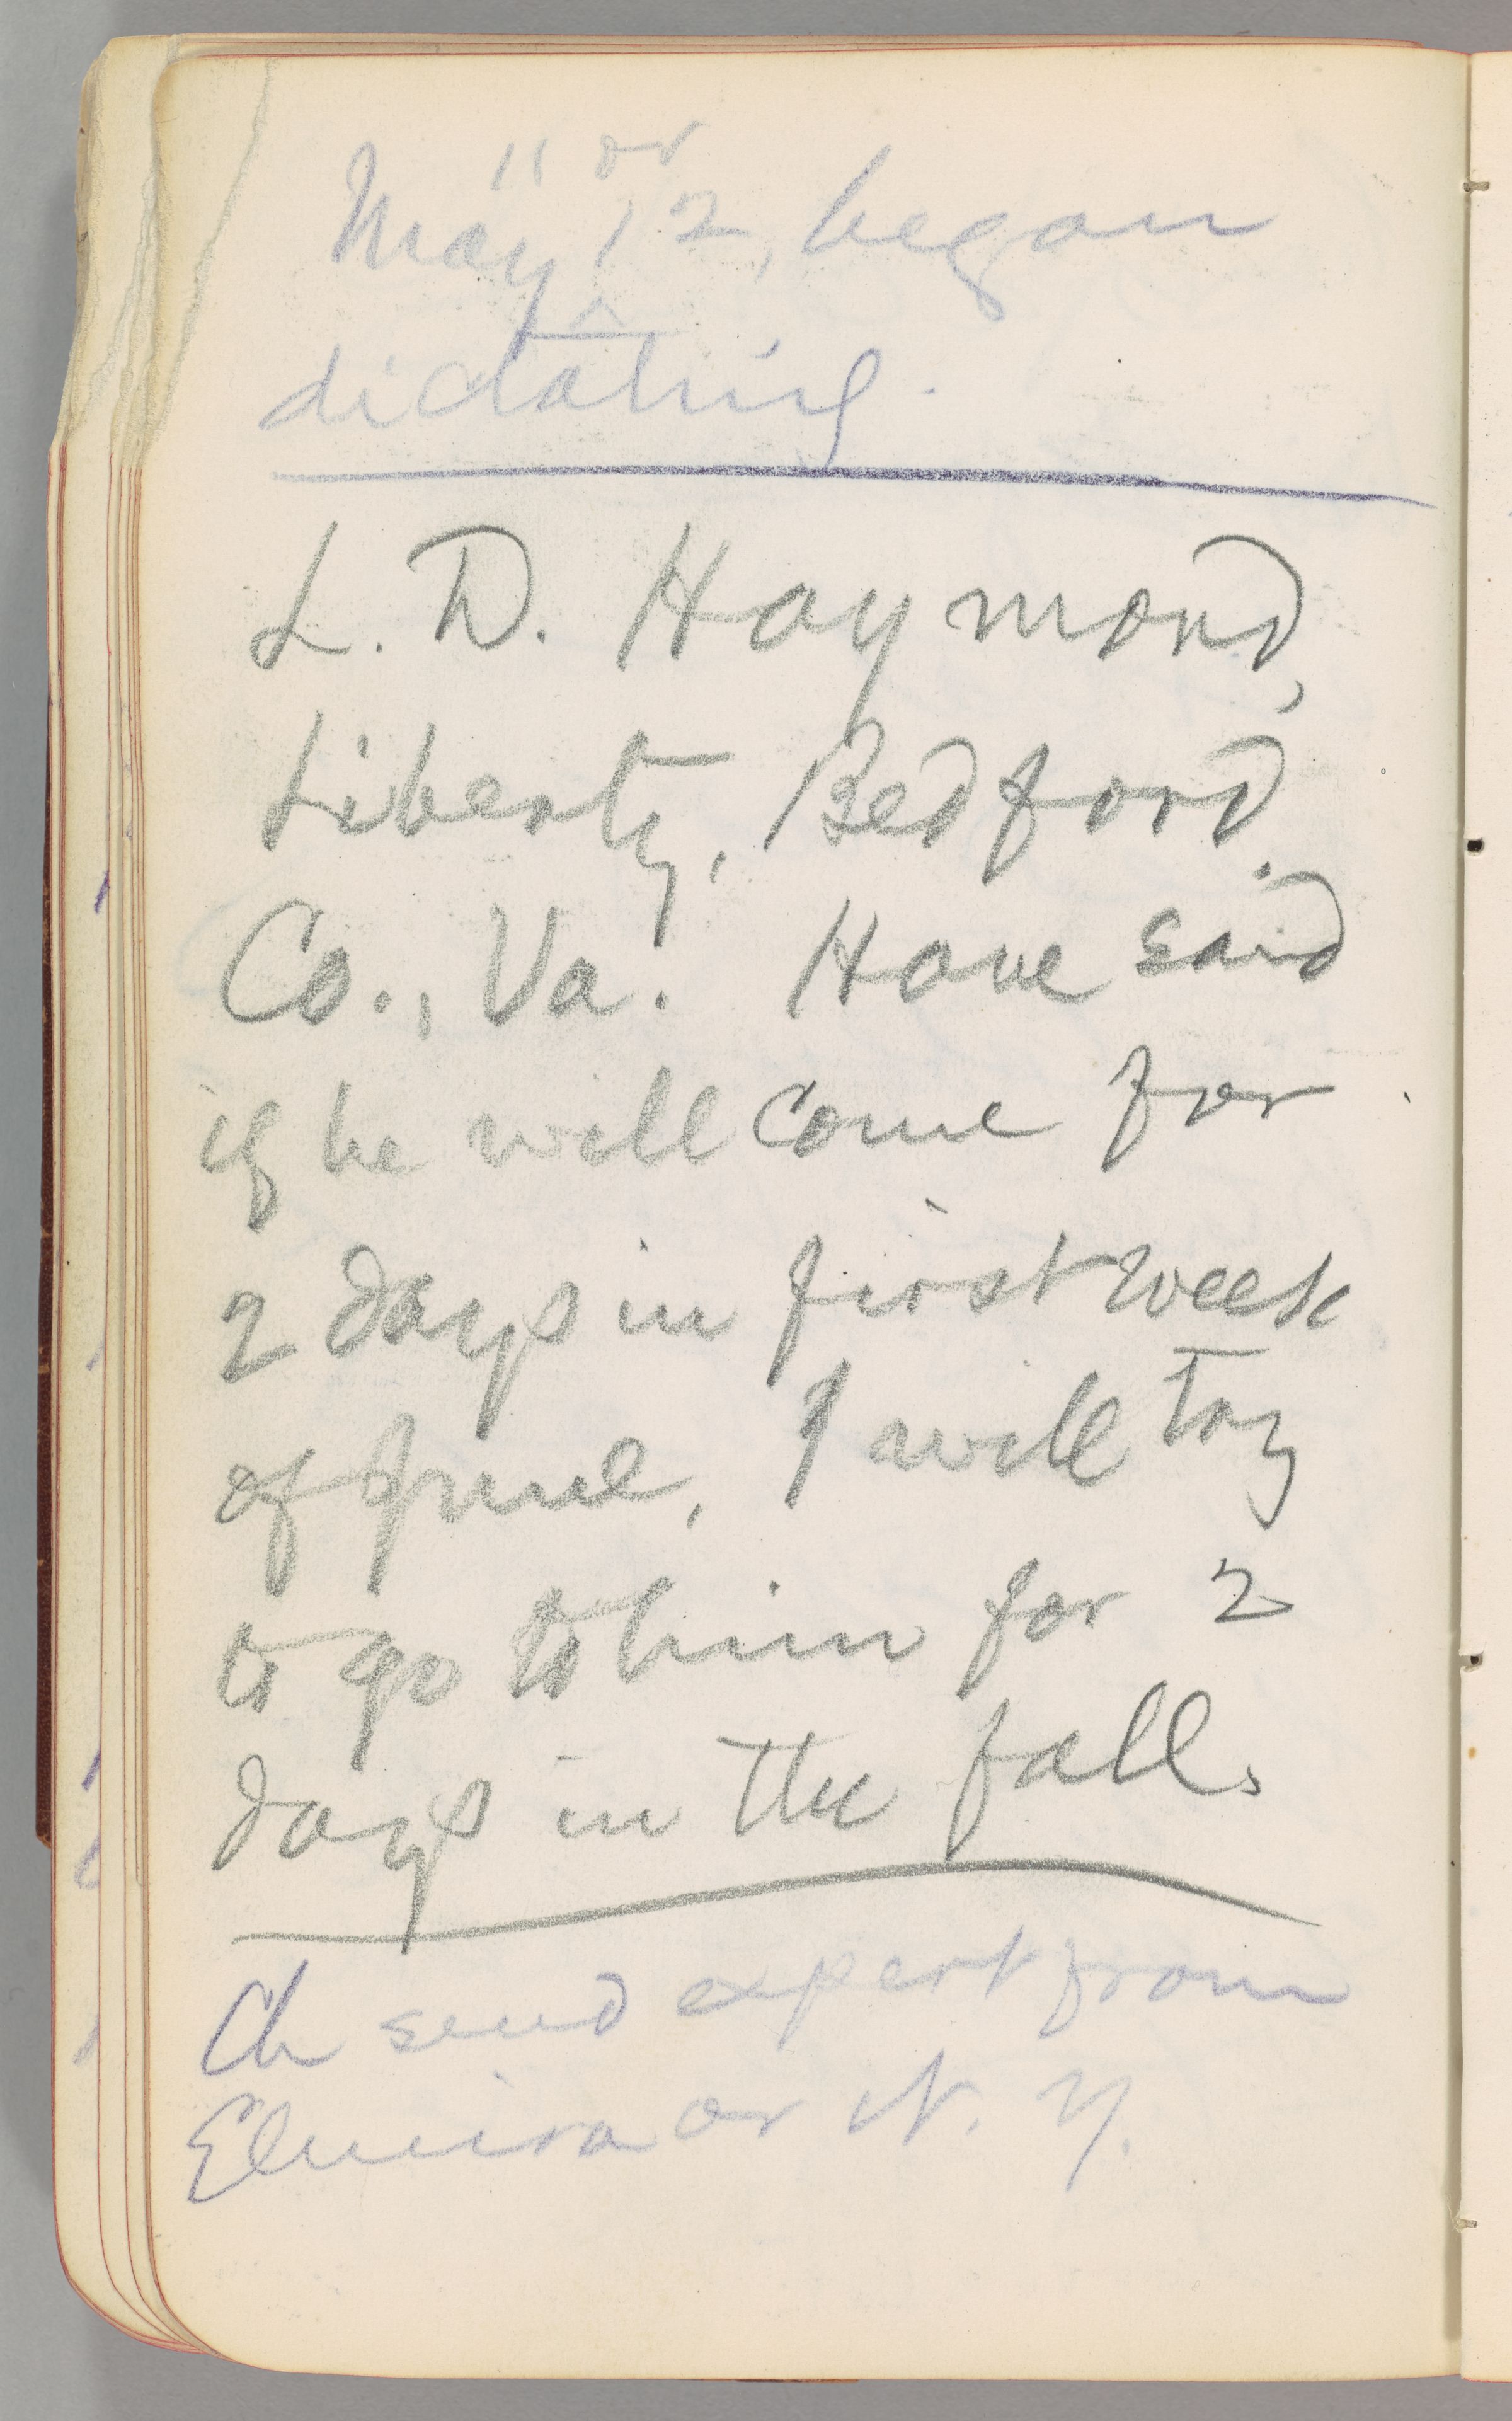 11 or
May 12, began
dictating.
L. D. Haymond,
Liberty, Bedford
Co., Va. Have said
if he will come for
2 days in first week
of June, I will try
to go to him for 2
days in the fall.
Ch send expert from
Elmira or N. Y.